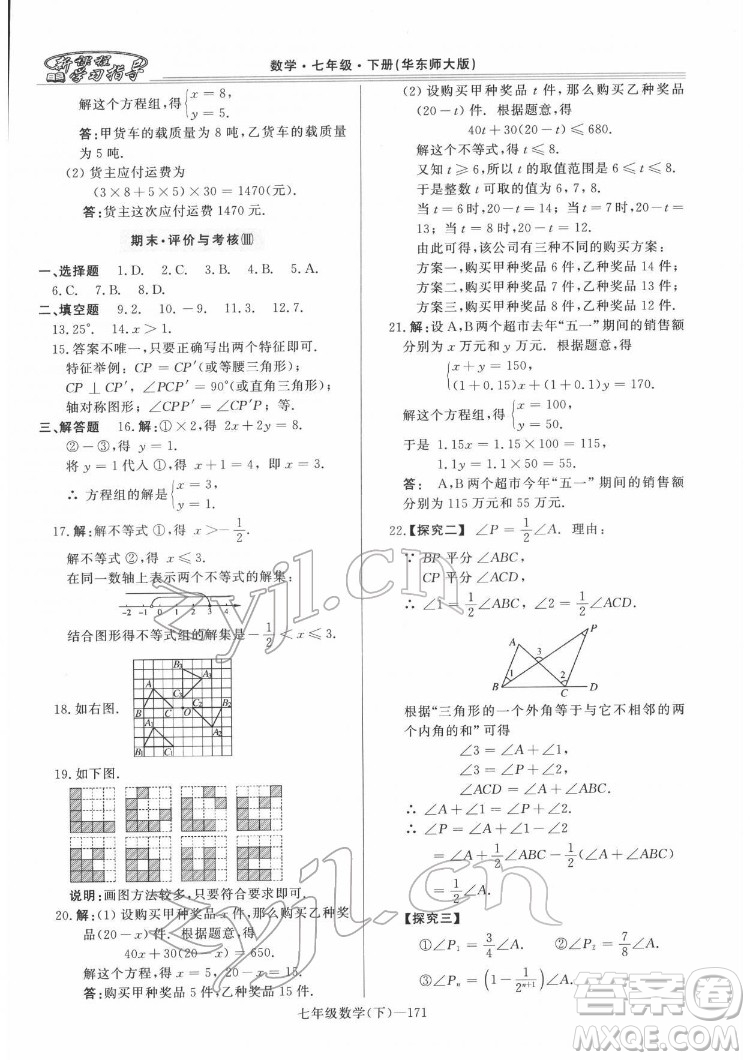 新课程学习指导
数学·七年级·下册(华东师大版)
解这个方程组,得{x=8, y=5.
答:甲货车的载质量为 8 吨,乙货车的载质量
为 5 吨.
(2) 货主应付运费为
(3×8+5×5)×30=1470(元).
答:货主这次应付运费 1470 元.
期末·评价与考核(Ⅲ)
一、选择题 1.D. 2.C. 3.A. 4.B. 5.A.
6.C. 7.B. 8.D.
二、填空题 9.2. 10.-9. 11.3. 12.7.
13.25°. 14.x>1.
15.答案不唯一,只要正确写出两个特征即可.
特征举例:CP=CP′(或等腰三角形)
CP⊥CP′,∠PCP′=90°(或直角三角形)
轴对称图形;∠CPP′=∠CP′P等.
三、解答题 16.解:①×2,得 2x+2y=8.
②-③,得 y=1.
将 y=1代入①,得 x+1=4.
∴ 方程组的解是{x=3, y=1.
17.解:解不等式①,得 x>-1/2.
解不等式②,得 x≤3.
在同一数轴上表示两个不等式的解集:
-2 -1 0 1 2 3 4
结合图形得不等式组的解集是-1/2<x≤3.
18.如右图.
19.如下图.
说明:画图方法较多,只要符合要求即可.
20.解:(1)设购买甲种奖品 x 件,那么购买乙种奖
品(20-x)件. 根据题意,得
40x+30(20-x)=650.
解这个方程,得 x=5, 20-x=15.
答:购买甲种奖品 5 件,乙种奖品 15 件.
(2) 设购买甲种奖品 t 件,那么购买乙种奖品
(20-t)件. 根据题意,得
40t+30(20-t)≤680.
解这个不等式,得 t≤8.
又知 t≥6,所以 t 的取值范围是 6≤t≤8.
于是整数 t 的值可以为 6,7,8.
当 t=6时,20-t=14;当 t=7时,20-t=13;
当 t=8时,20-t=12.
由此可得,该公司有三种不同的购买方案:
方案一,购买甲种奖品 6 件,乙种奖品 14 件;
方案二,购买甲种奖品 7 件,乙种奖品 13 件;
方案三,购买甲种奖品 8 件,乙种奖品 12 件.
21.解:设 A,B 两个超市去年“五一”期间的销售额
分别为 x 万元和 y 万元. 根据题意,得
{x+y=150, (1+0.15)x+(1+0.1)y=170.
解这个方程组,得{x=100, y=50.
于是,1.15x=1.15×100=115,
1.1y=1.1×50=55.
答: A,B 两个超市今年“五一”期间的销售额
分别为 115 万元和 55 万元.
22.【探究二】 ∠P=1/2∠A. 理由:
∵ BP 平分∠ABC,
CP 平分∠ACD,
∴ ∠1=1/2∠ABC,∠2=1/2∠ACD.
A 3 P 1 2 B C D
根据“三角形的一个外角等于与它不相邻的两
个内角的和”可得
∠3=∠1+∠A,
∠3=∠P+∠2,
∠ACD=∠A+∠ABC.
∴ ∠1+∠A=∠P+∠2.
∴ ∠P=∠1+∠A-∠2
=∠A+1/2∠ABC-1/2∠ACD
=∠A-1/2∠A
=1/2∠A.
【探究三】
①∠P₁=3/4∠A. ②∠P₂=7/8∠A.
③∠Pₙ=(1-1/2ⁿ⁺¹)∠A.
七年级数学(下)—171
zyjl.cn
zyjl.cn
答案圈
MXQE.COM